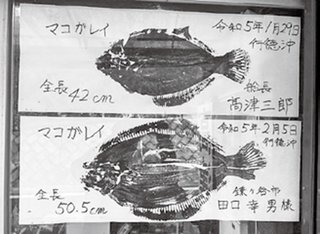 マコガレイ
令和5年1月29日
行徳沖
全長
42cm
船長
高津三郎
マコガレイ
令和5年2月5日
行徳沖
全長
50.5cm
鎌ヶ谷市
田口幸男様